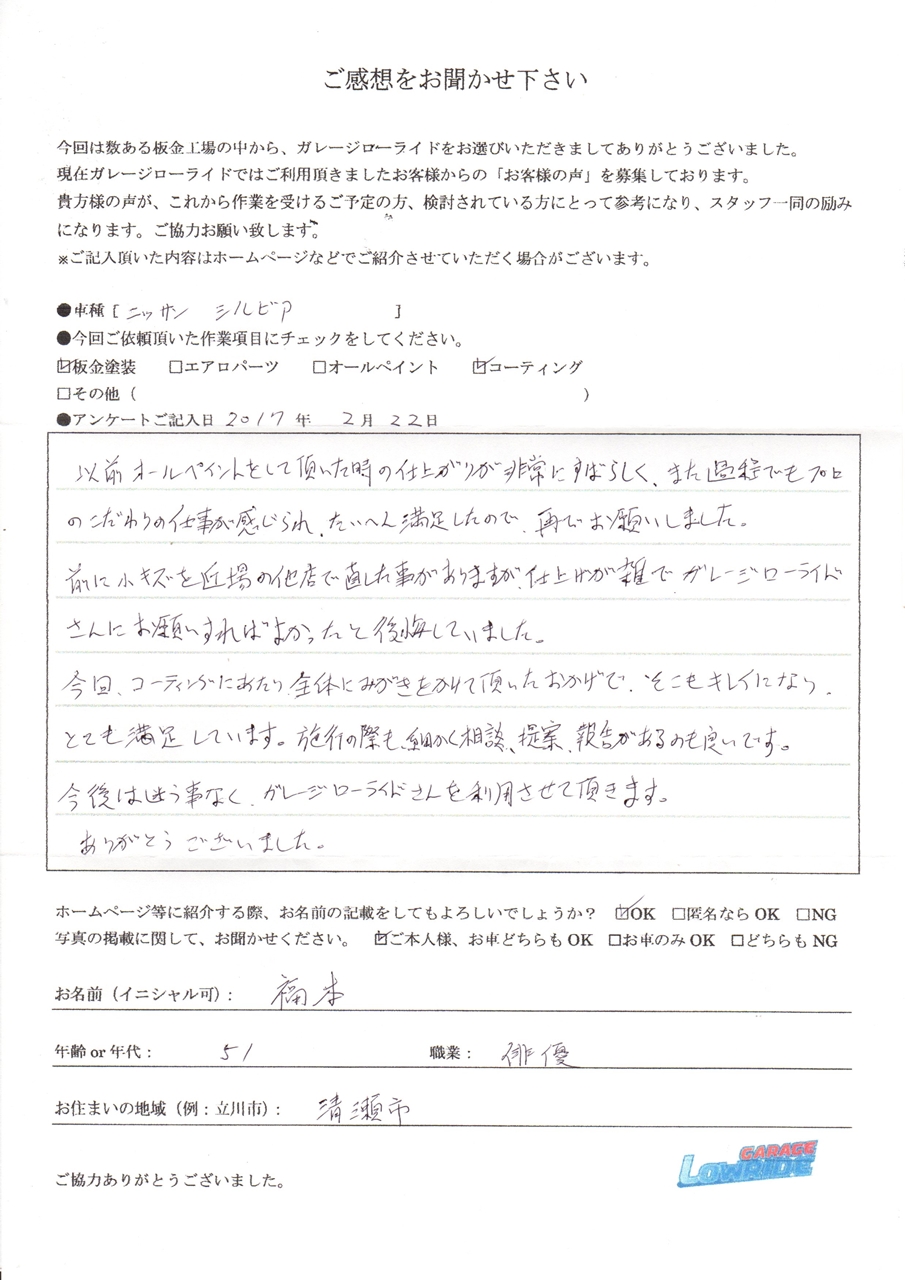 ご感想をお聞かせ下さい
今回は数ある板金工場の中から、ガレージローライドをお選びいただきましてありがとうございました。
現在ガレージローライドではご利用頂きましたお客様からの「お客様の声」を募集しております。
貴方様の声が、これから作業を受けるご予定の方、検討されている方にとって参考になり、スタッフ一同の励み
になります。ご協力お願い致します。
※ご記入頂いた内容はホームページなどでご紹介させていただく場合がございます。
●車種 [ ニッサン シルビア ]
●今回ご依頼頂いた作業項目にチェックをしてください。
☑板金塗装 □エアロパーツ □オールペイント ☑コーティング
□その他 ( )
●アンケートご記入日 2017年 2月 22日
以前オールペイントをして頂いた時の仕上がりが非常にすばらしく、また過程でもプロ
のこだわりの仕事が感じられ、たいへん満足したので、再でお願いしました。
前に小キズを近場の他店で直した事がありますが、仕上げが雑でガレージローライド
さんにお願いすればよかったと後悔していました。
今回、コーティングにあたり全体にみがきをかけて頂いたおかげで、そこもキレイになり、
とても満足しています。施行の際も、細かく相談、提案、報告があるのも良いです。
今後は迷う事なく、ガレージローライドさんを利用させて頂きます。
ありがとうございました。
ホームページ等に紹介する際、お名前の記載をしてもよろしいでしょうか？ ☑OK □匿名なら OK □NG
写真の掲載に関して、お聞かせください。 ☑ご本人様、お車どちらも OK □お車のみ OK □どちらも NG
お名前（イニシャル可）： 福本
年齢 or 年代： 51 職業： 俳優
お住まいの地域（例：立川市）： 清瀬市
GARAGE
LOWRIDE
ご協力ありがとうございました。